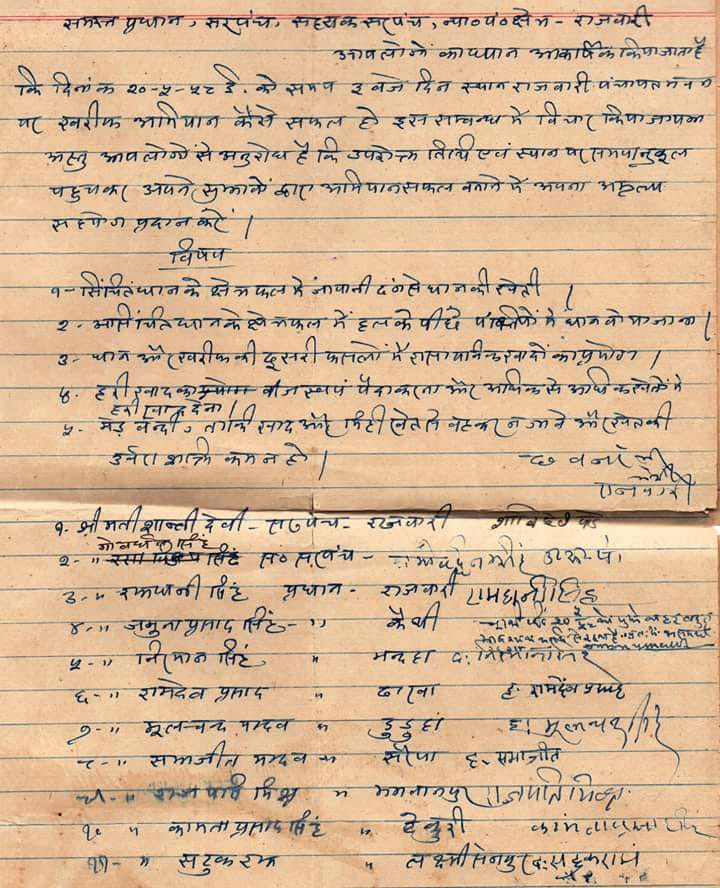 समस्त प्रधान, सरपंच, सहायक सरपंच, न्या० पं० क्षेत्र - राजवारी
आपलोगों का ध्यान आकर्षित किया जाता है
कि दिनांक २०-५-५८ ई. को समय ३ बजे दिन स्थान राजवारी पंचायत भवन
पर खरीफ अभियान कैसे सफल हो इस सम्बन्ध में विचार किया जायगा
अस्तु आपलोगों से अनुरोध है कि उपरोक्त तिथि एवं स्थान पर समयानुकूल
पहुचकर अपने सुझावों द्वारा अभियान सफल बनाने में अपना अमूल्य
सहयोग प्रदान करें।
विषय
१- सिंचित धान के क्षेत्रफल में जापानी ढंग से धान की खेती।
२- असिंचित धान के क्षेत्रफल में हल के पीछे पंक्तियों में धान बोया जाना।
३- धान और खरीफ की दूसरी फसलों में रासायनिक खादों का प्रयोग।
४. हरी खाद का बीज स्वयं पैदा करना और अधिक से अधिक खेतों में
हरी खाद देना।
५. मेड़ बन्दी, ताकि खाद और मिट्टी खेत से बहकर न जावे और खेत की
उर्वरा शक्ति कम न हो।
राजवारी
१. श्रीमती शान्ती देवी - सरपंच - राजवारी
गोवर्धन सिंह
२- " स० सरपंच -
३- " रामधनी सिंह प्रधान - राजवारी रामधनी सिंह
४- " जमुना प्रसाद सिंह - " कैथी
५- " सिंह " चन्दहा
६- " रामदेव प्रसाद " ढाखा ह: रामदेव प्रसाद
७- " मूलचन्द यादव " डुडुहा ह: मूलचन्द
८- " रामजीत यादव " सरैया ह. रामजीत
९- " " राजपति मिश्र
१० " कामता प्रसाद सिंह " ढेकुरी कामता प्रसाद सिंह
११- " सहुकराम " लक्ष्मीसेनपुर द: सहुकराम